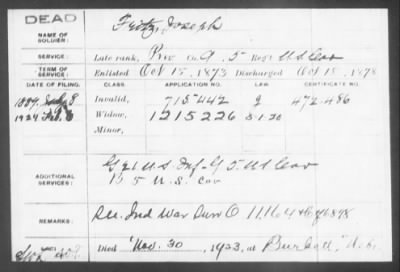 DEAD
NAME OF SOLDIER: Fritz, Joseph
SERVICE: Late rank, Priv Co. A. 5 Reg't U S Cav
TERM OF SERVICE: Enlisted Oct 15, 1873 Discharged Oct 15, 1878
DATE OF FILING. CLASS. APPLICATION NO. LAW. CERTIFICATE NO.
1889. July 8 Invalid, 715442 g 472.486
1924 Widow, 1215226
Minor,
ADDITIONAL SERVICES: G 21 U.S. Inf - G 5 U S Cav
B 5 U.S. Cav
REMARKS: Ind War
Died Nov. 30, 1923, at Nebr.